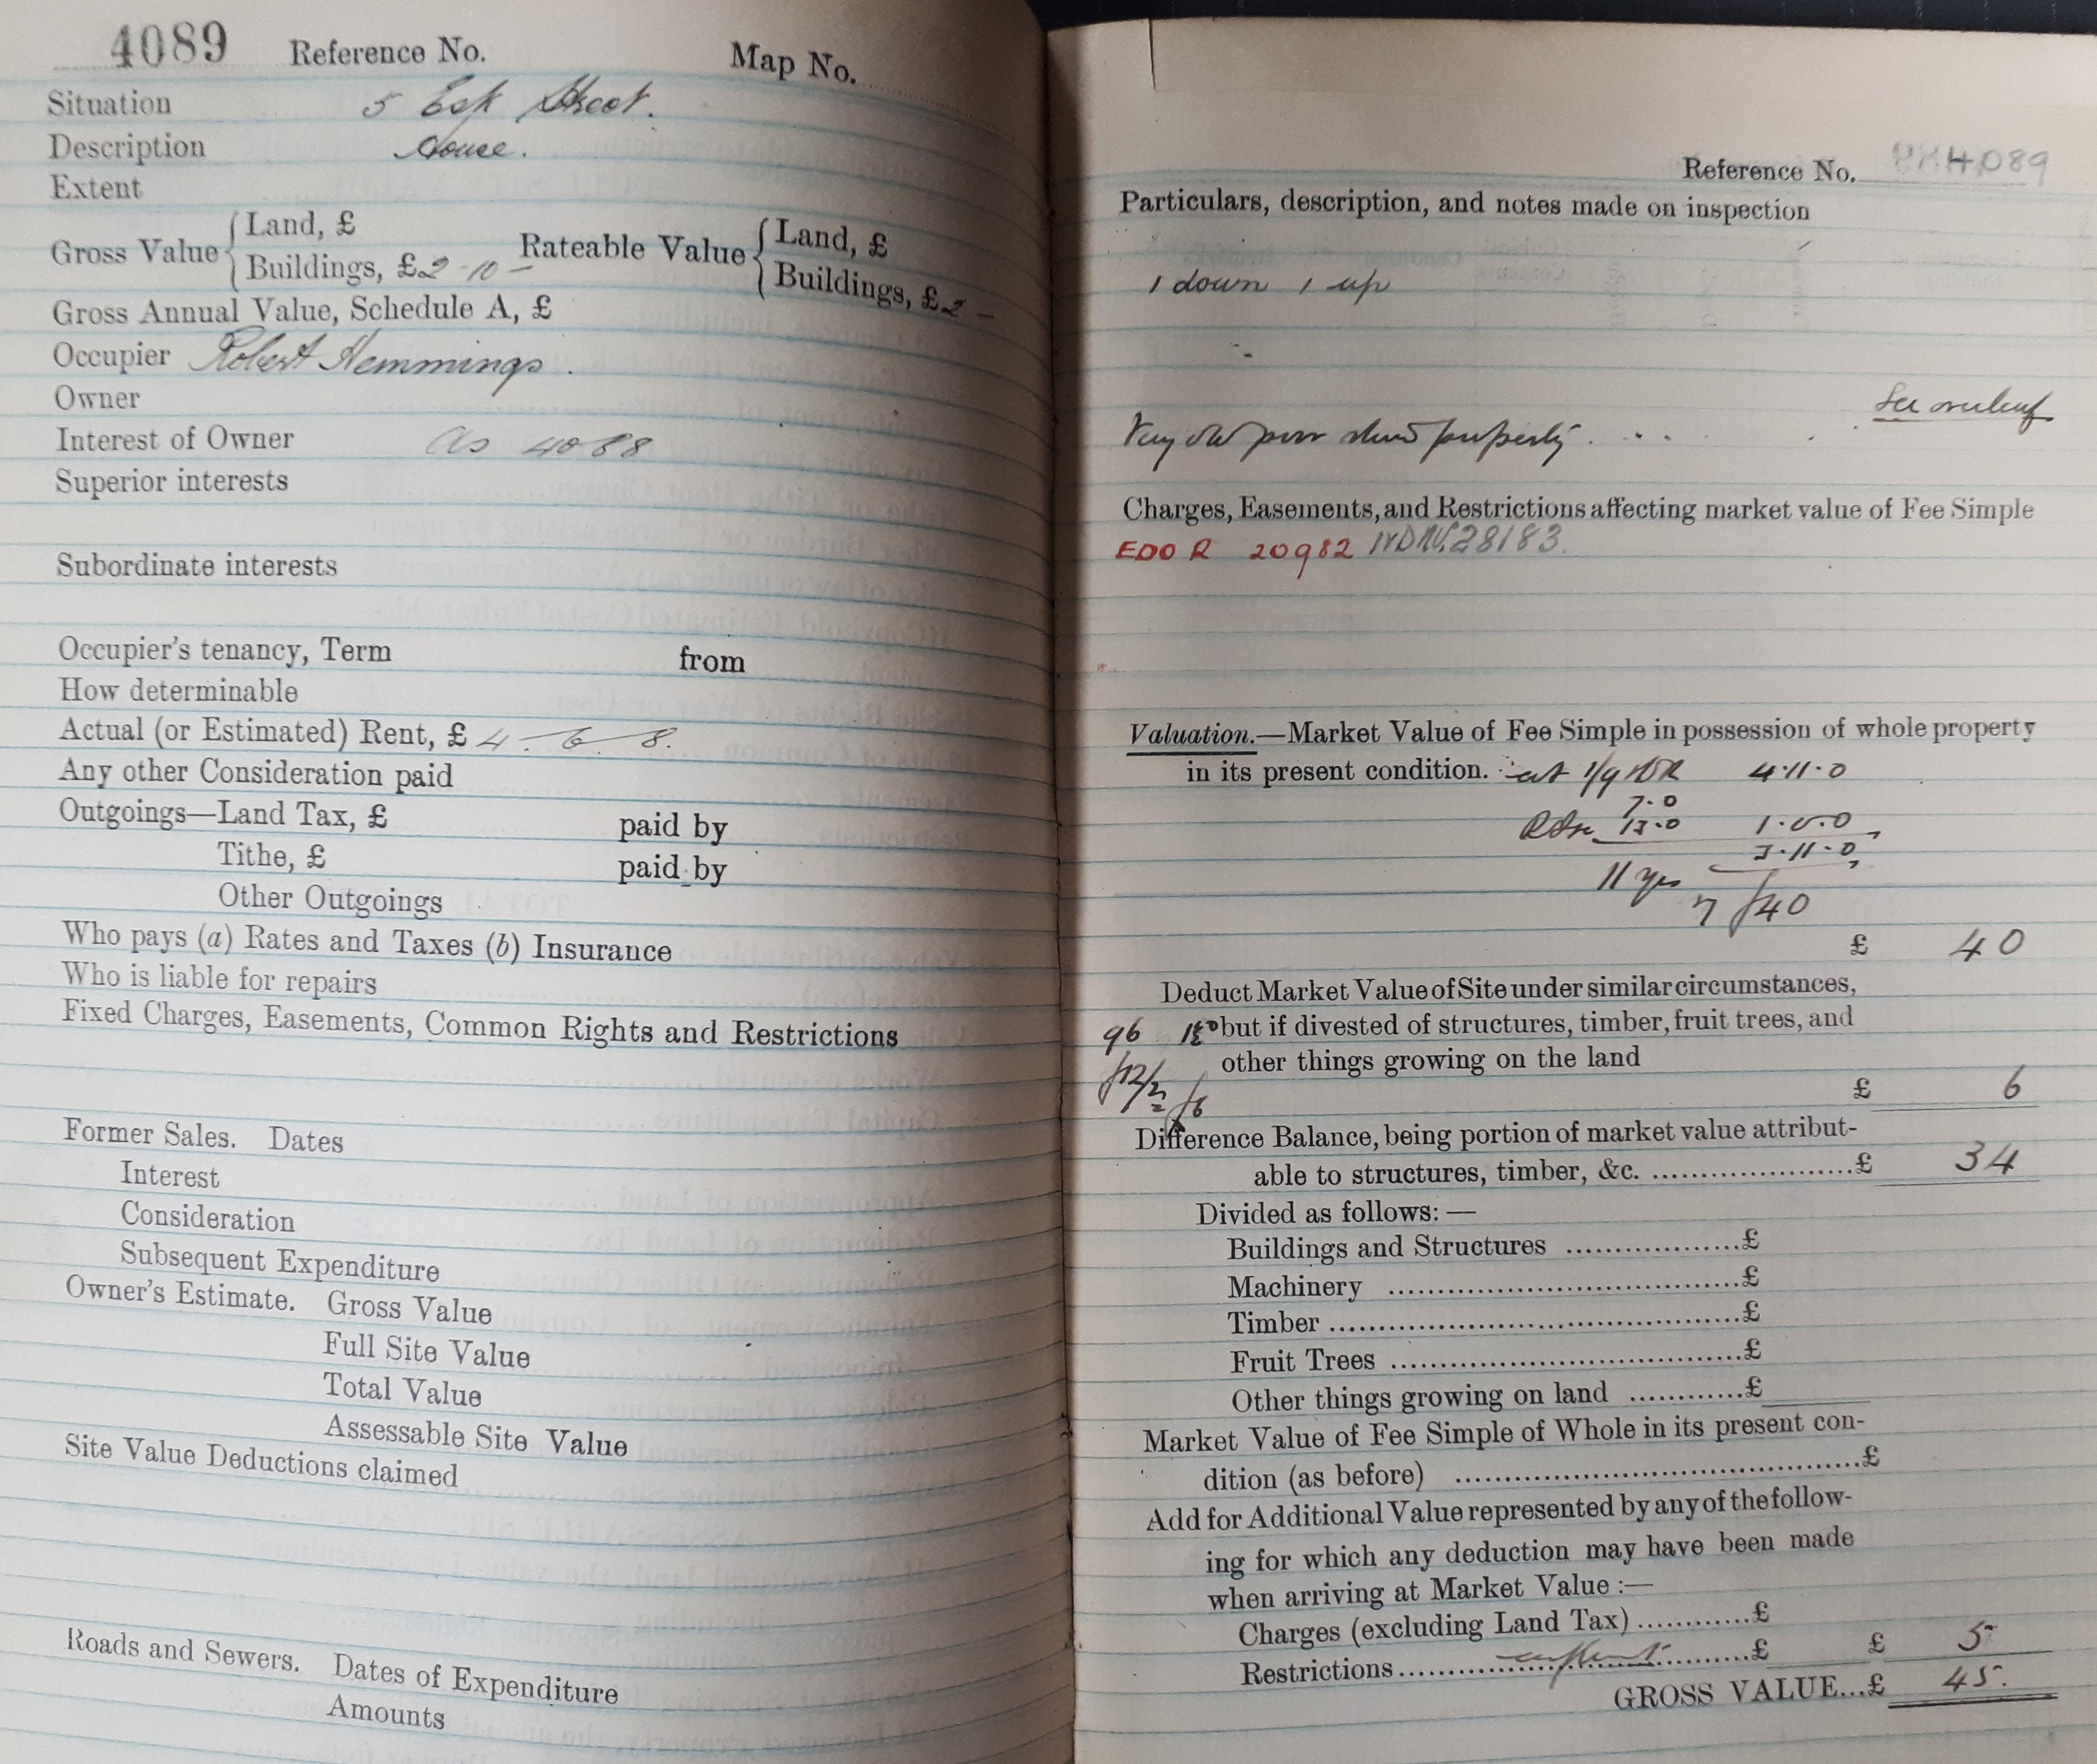 4089 Reference No. Map No.
Situation 5 Esk Street.
Description House.
Extent
Gross Value { Land, £
Buildings, £2-10-
Rateable Value { Land, £
Buildings, £2-
Gross Annual Value, Schedule A, £
Occupier Robert Hemmings.
Owner
Interest of Owner as 4088
Superior interests
Subordinate interests
Occupier's tenancy, Term from
How determinable
Actual (or Estimated) Rent, £ 4-6-8.
Any other Consideration paid
Outgoings—Land Tax, £ paid by
Tithe, £ paid by
Other Outgoings
Who pays (a) Rates and Taxes (b) Insurance
Who is liable for repairs
Fixed Charges, Easements, Common Rights and Restrictions
Former Sales. Dates
Interest
Consideration
Subsequent Expenditure
Owner's Estimate. Gross Value
Full Site Value
Total Value
Assessable Site Value
Site Value Deductions claimed
Roads and Sewers. Dates of Expenditure
Amounts
Reference No. 4089
Particulars, description, and notes made on inspection
1 down 1 up
See overleaf
Very old poor slum property.
Charges, Easements, and Restrictions affecting market value of Fee Simple
EDO R 20982 28183.
Valuation.—Market Value of Fee Simple in possession of whole property
in its present condition. at 1/9 4.11.0
7.0
13.0 1.0.0
3.11.0
11 yrs
£40
£ 40
Deduct Market Value of Site under similar circumstances,
96 but if divested of structures, timber, fruit trees, and
other things growing on the land
£12/2 £6
£ 6
Difference Balance, being portion of market value attribut-
able to structures, timber, &c. ....................£ 34
Divided as follows:—
Buildings and Structures ..................£
Machinery ....................................£
Timber ..........................................£
Fruit Trees ....................................£
Other things growing on land ...........£
Market Value of Fee Simple of Whole in its present con-
dition (as before) ..........................................£
Add for Additional Value represented by any of the follow-
ing for which any deduction may have been made
when arriving at Market Value :—
Charges (excluding Land Tax)...........£
Restrictions..............................£ £ 5
GROSS VALUE...£ 45.